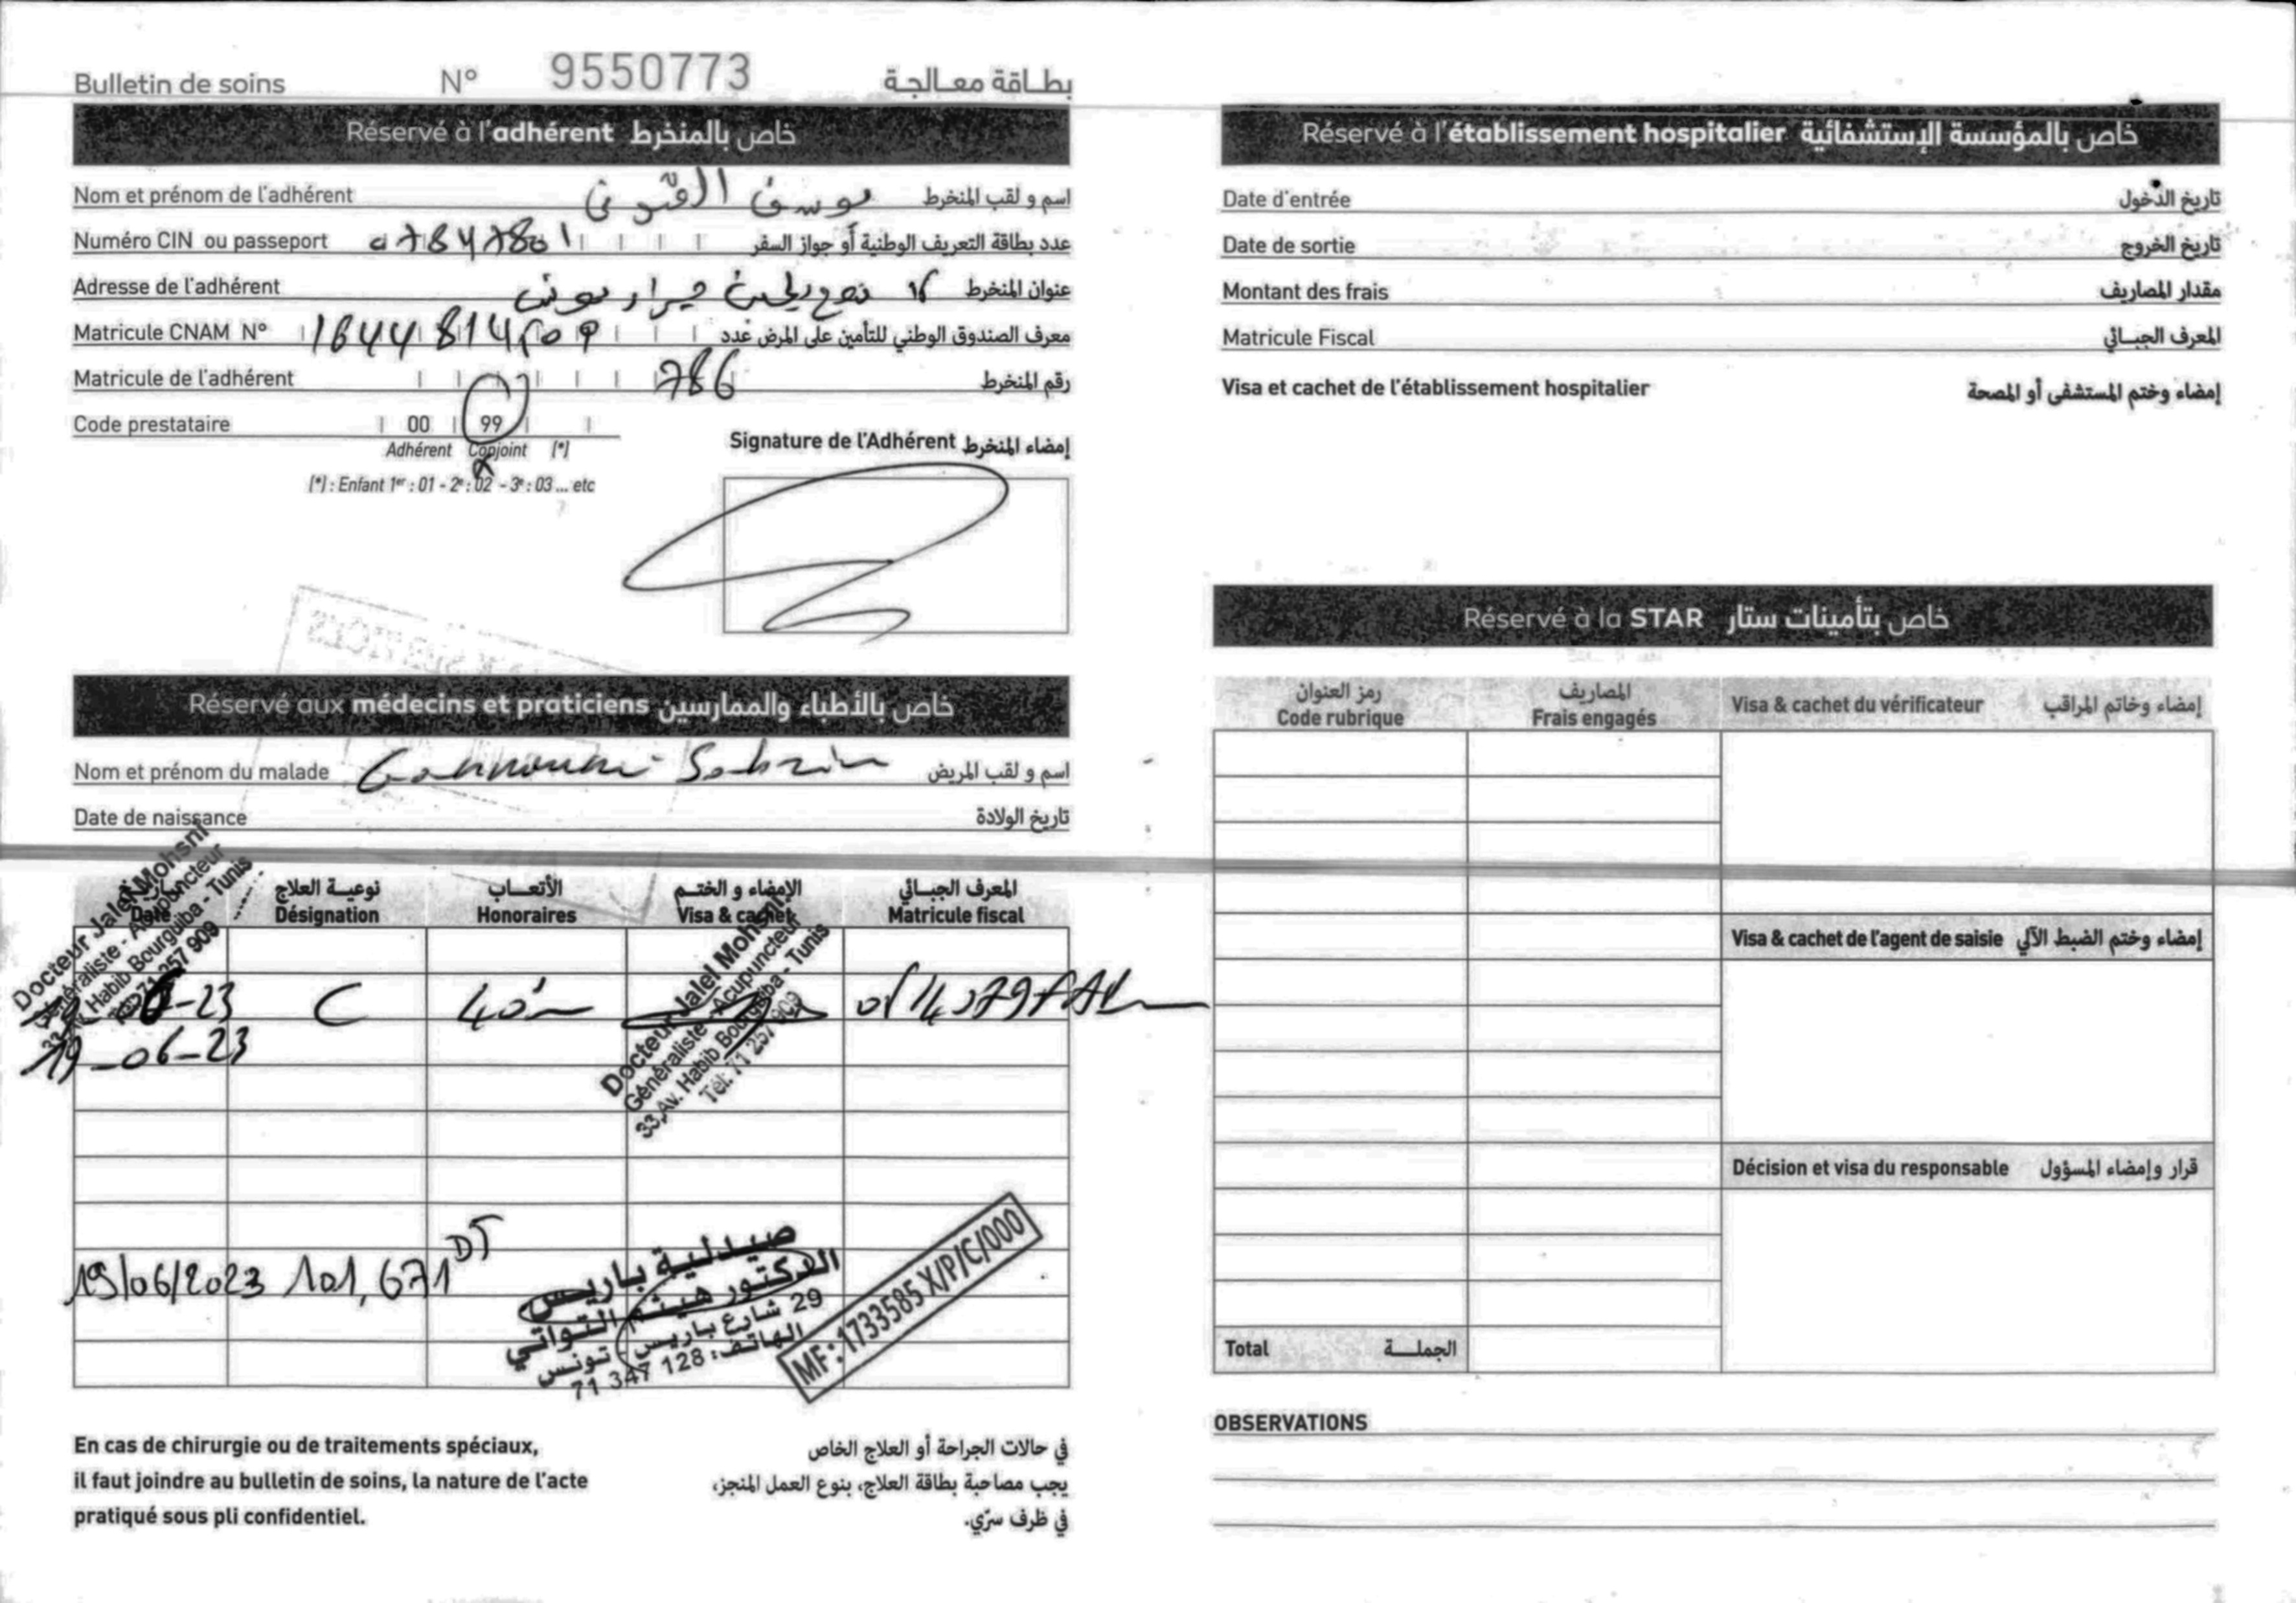 Bulletin de soins N° 9550773 بطاقة معالجة
Réservé à l'adhérent خاص بالمنخرط
Nom et prénom de l'adhérent يوسف اسم و لقب المنخرط
Numéro CIN ou passeport عدد بطاقة التعريف الوطنية أو جواز السفر
Adresse de l'adhérent عنوان المنخرط
Matricule CNAM N° معرف الصندوق الوطني للتأمين على المرض عدد
Matricule de l'adhérent 786 رقم المنخرط
Code prestataire 00 99
Adhérent Conjoint (*)
(*) : Enfant 1er : 01 - 2e : 02 - 3e : 03 ... etc
Signature de l'Adhérent إمضاء المنخرط
Réservé aux médecins et praticiens خاص بالأطباء والممارسين
Nom et prénom du malade اسم و لقب المريض
Date de naissance تاريخ الولادة
Docteur Jalel Mohsni
Généraliste - Acupuncteur
33, Av. Habib Bourguiba - Tunis
Tél: 71 257 909
Date
نوعية العلاج الأتعاب الإمضاء و الختم المعرف الجبائي
Désignation Honoraires Visa & cachet Matricule fiscal
C
19-06-23
Docteur Jalel Mohsni
Généraliste - Acupuncteur
33, Av. Habib Bourguiba - Tunis
Tél: 71 257 909
19/06/2023 101,671 DT
صيدلية باريس
الدكتور هيثم التواتي
29 شارع باريس - تونس
الهاتف: 128 347 71
MF: 1733585 X/P/C/000
En cas de chirurgie ou de traitements spéciaux,
il faut joindre au bulletin de soins, la nature de l'acte
pratiqué sous pli confidentiel.
في حالات الجراحة أو العلاج الخاص
يجب مصاحبة بطاقة العلاج، بنوع العمل المنجز،
في ظرف سرّي.
Réservé à l'établissement hospitalier خاص بالمؤسسة الإستشفائية
Date d'entrée تاريخ الدخول
Date de sortie تاريخ الخروج
Montant des frais مقدار المصاريف
Matricule Fiscal المعرف الجبائي
Visa et cachet de l'établissement hospitalier إمضاء وختم المستشفى أو المصحة
Réservé à la STAR خاص بتأمينات ستار
رمز العنوان المصاريف
Code rubrique Frais engagés Visa & cachet du vérificateur إمضاء وخاتم المراقب
Visa & cachet de l'agent de saisie إمضاء وختم الضبط الآلي
Décision et visa du responsable قرار وإمضاء المسؤول
Total الجملة
OBSERVATIONS